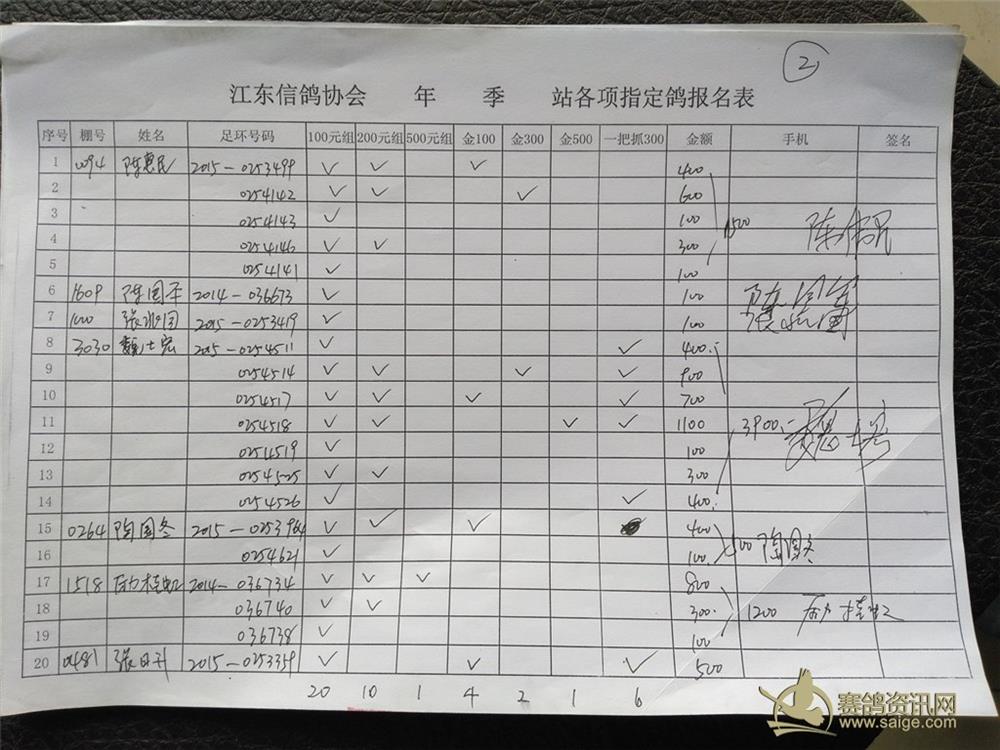 2
江东信鸽协会 年 季 站各项指定鸽报名表
序号 棚号 姓名 足环号码 100元组 200元组 500元组 金100 金300 金500 一把抓300 金额 手机 签名
1 0094 陈惠民 2015-0253499 ✓ ✓ ✓ 400
2 0254142 ✓ ✓ ✓ 600
3 0254143 ✓ 100 1500
4 0254146 ✓ ✓ 300
5 0254141 ✓ 100
6 1609 陈国平 2014-036673 ✓ 100
7 100 2015-0253419 ✓ 100
8 3030 魏士宏 2015-0254511 ✓ ✓ 400
9 0254514 ✓ ✓ ✓ ✓ 900
10 0254517 ✓ ✓ ✓ ✓ 700
11 0254518 ✓ ✓ ✓ ✓ 1100 3900
12 0254519 ✓ 100
13 0254525 ✓ ✓ 300
14 0254526 ✓ ✓ 400
15 0264 陶国冬 2015-0253964 ✓ ✓ ✓ 400 500 陶国冬
16 0254621 ✓ 100
17 1518 2014-036734 ✓ ✓ ✓ 800
18 036740 ✓ ✓ 300 1200
19 036738 ✓ 100
20 0481 张日升 2015-0253359 ✓ ✓ ✓ 500
20 10 1 4 2 1 6
赛鸽资讯网
www.saige.com